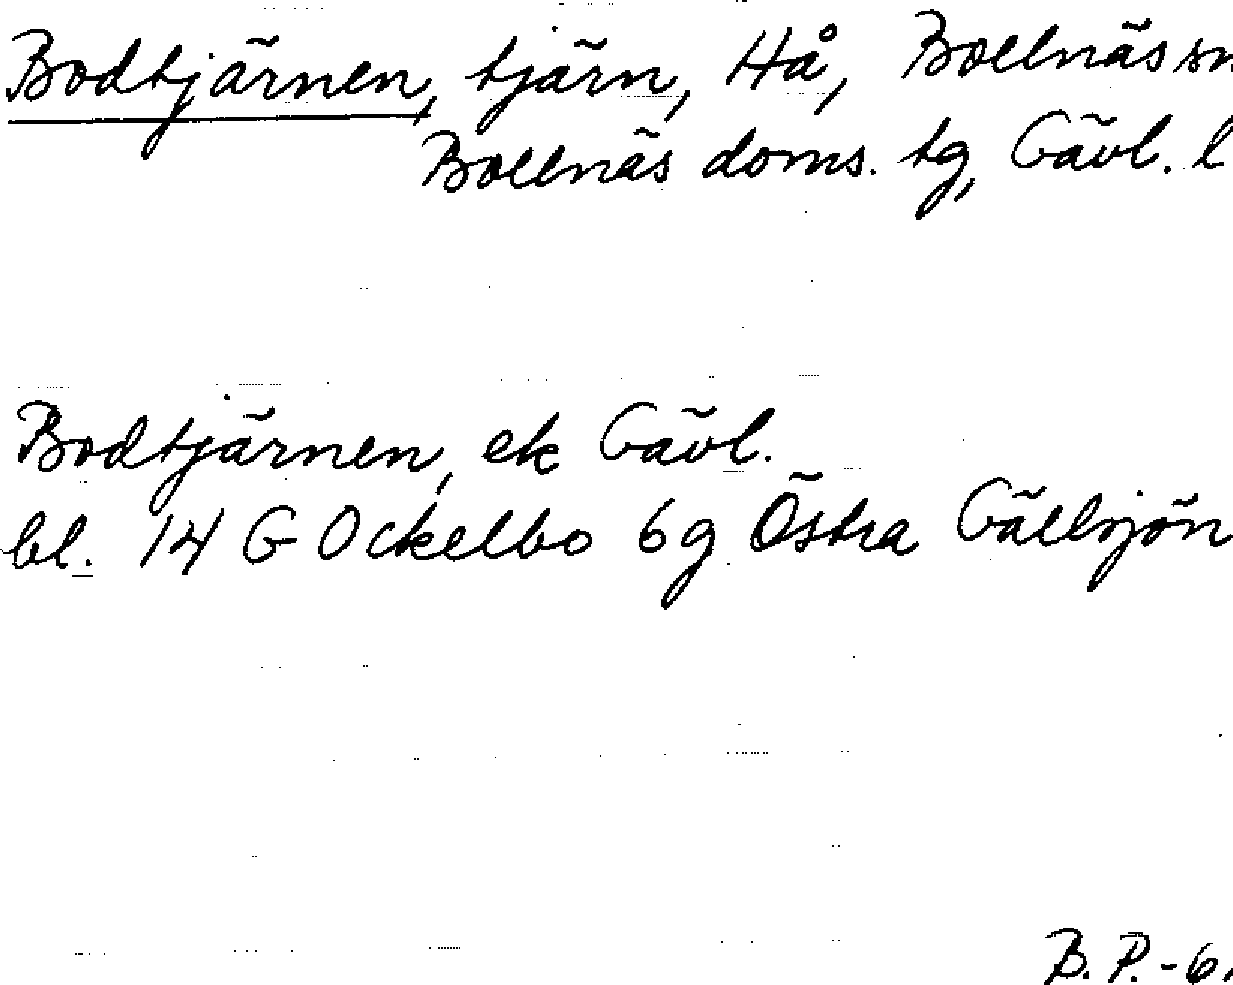 Bodtjärnen, tjärn, Hå, Bollnäs sn
Bollnäs doms. tg, Gävl. l
Bodtjärnen, ek Gävl.
bl. 14 G Ockelbo 6g Östra Gällsjön
B. P. - 6